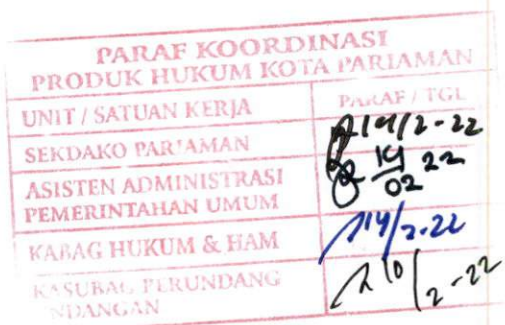 PARAF KOORDINASI
PRODUK HUKUM KOTA PARIAMAN
UNIT / SATUAN KERJA PARAF / TGL
SEKDAKO PARIAMAN 14/2-22
ASISTEN ADMINISTRASI
PEMERINTAHAN UMUM 14/02 22
KABAG HUKUM & HAM 14/2-22
KASUBAG PERUNDANG
UNDANGAN 10/2-22